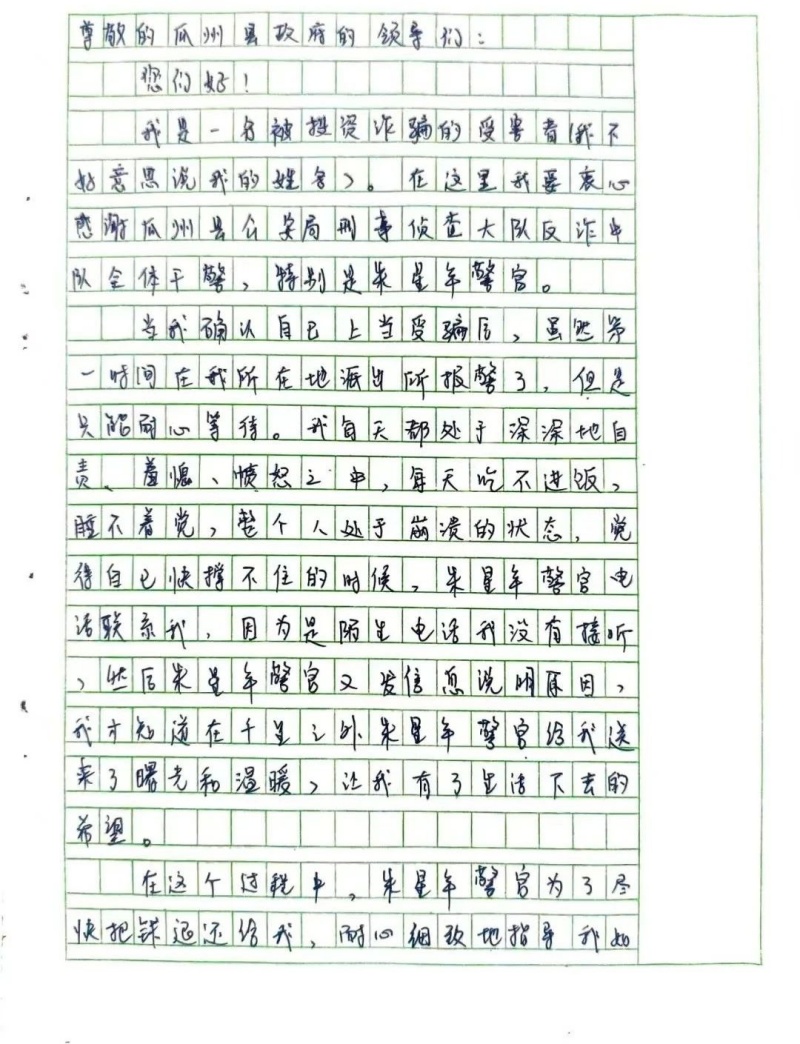 尊敬的瓜州县政府的领导们：
您们好！
我是一名被投资诈骗的受害者（我不
好意思说我的姓名）。在这里我要衷心
感谢瓜州县公安局刑事侦查大队反诈中
队全体干警，特别是朱星年警官。
当我确认自已上当受骗后，虽然第
一时间在我所在地派出所报警了，但是
只能耐心等待。我每天都处于深深地自
责、羞愧、愤怒之中，每天吃不进饭，
睡不着觉，整个人处于崩溃的状态，觉
得自已快撑不住的时候，朱星年警官电
话联系我，因为是陌生电话我没有接听
，然后朱星年警官又发信息说明原因，
我才知道在千里之外朱星年警官给我送
来了曙光和温暖，让我有了生活下去的
希望。
在这个过程中，朱星年警官为了尽
快把钱返还给我，耐心细致地指导我如